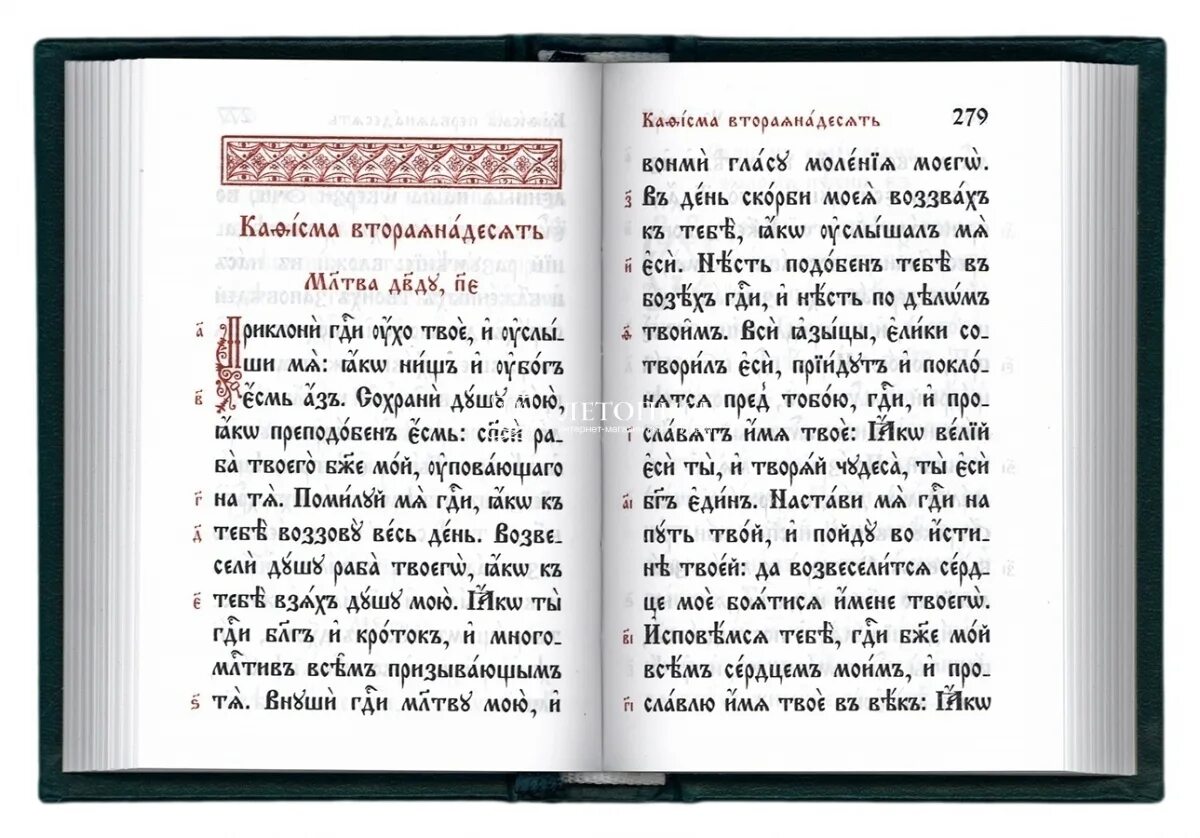 Каѳі́сма втораѧна́десѧть
Мл҃тва дв҃ду, п҃е
а҃ Приклонѝ гдⷭ҇и ᲂу҆́хо твоѐ, и҆ ᲂу҆слы́-
ши мѧ̀: ꙗ҆́кѡ ни́щъ и҆ ᲂу҆бо́гъ
в҃ є҆́смь а҆́зъ. Сохранѝ дꙋ́шꙋ мою̀,
ꙗ҆́кѡ преподо́бенъ є҆́смь: сп҃сѝ ра-
ба̀ твоего̀ бж҃е мо́й, ᲂу҆пова́ющаго
г҃ на тѧ̀. Поми́лꙋй мѧ̀ гдⷭ҇и, ꙗ҆́кѡ къ
д҃ тебѣ̀ воззовꙋ̀ ве́сь де́нь. Возве-
селѝ дꙋ́шꙋ раба̀ твоегѡ̀, ꙗ҆́кѡ къ
є҃ тебѣ̀ взѧ́хъ дꙋ́шꙋ мою̀. Ꙗ҆́кѡ ты̀
гдⷭ҇и бл҃гъ и҆ кро́токъ, и҆ много-
мл҃тивъ всѣ̑мъ призыва́ющымъ
ѕ҃ тѧ̀. Внꙋшѝ гдⷭ҇и мл҃твꙋ мою̀, и҆
Каѳі́сма втораѧна́десѧть 279
вонмѝ гла́сꙋ моле́нїѧ моегѡ̀.
з҃ Въ де́нь ско́рби моеѧ̀ воззва́хъ
къ тебѣ̀, ꙗ҆́кѡ ᲂу҆слы́шалъ мѧ̀
и҃ є҆сѝ. Нѣ́сть подо́бенъ тебѣ̀ въ
бозѣ́хъ гдⷭ҇и, и҆ нѣ́сть по дѣлѡ́мъ
ѳ҃ твои̑мъ. Всѝ ꙗ҆зы́цы, є҆ли́ки со-
твори́лъ є҆сѝ, прїи́дꙋтъ и҆ покло́-
нѧтсѧ пред̾ тобо́ю, гдⷭ҇и, и҆ про-
і҃ сла́вѧтъ и҆́мѧ твоѐ: Ꙗ҆́кѡ ве́лїй
є҆сѝ ты̀, и҆ творѧ́й чꙋдеса̀, ты̀ є҆сѝ
а҃і бг҃ъ є҆ди́нъ. Наста́ви мѧ̀ гдⷭ҇и на
пꙋ́ть тво́й, и҆ пойдꙋ̀ во и҆́сти-
нѣ твое́й: да возвесели́тсѧ се́рд-
це моѐ боѧ́тисѧ и҆́мене твоегѡ̀.
в҃і И҆сповѣ́мсѧ тебѣ̀, гдⷭ҇и бж҃е мо́й
всѣ́мъ се́рдцемъ мои́мъ, и҆ про-
г҃і сла́влю и҆́мѧ твоѐ въ вѣ́къ: Ꙗ҆́кѡ